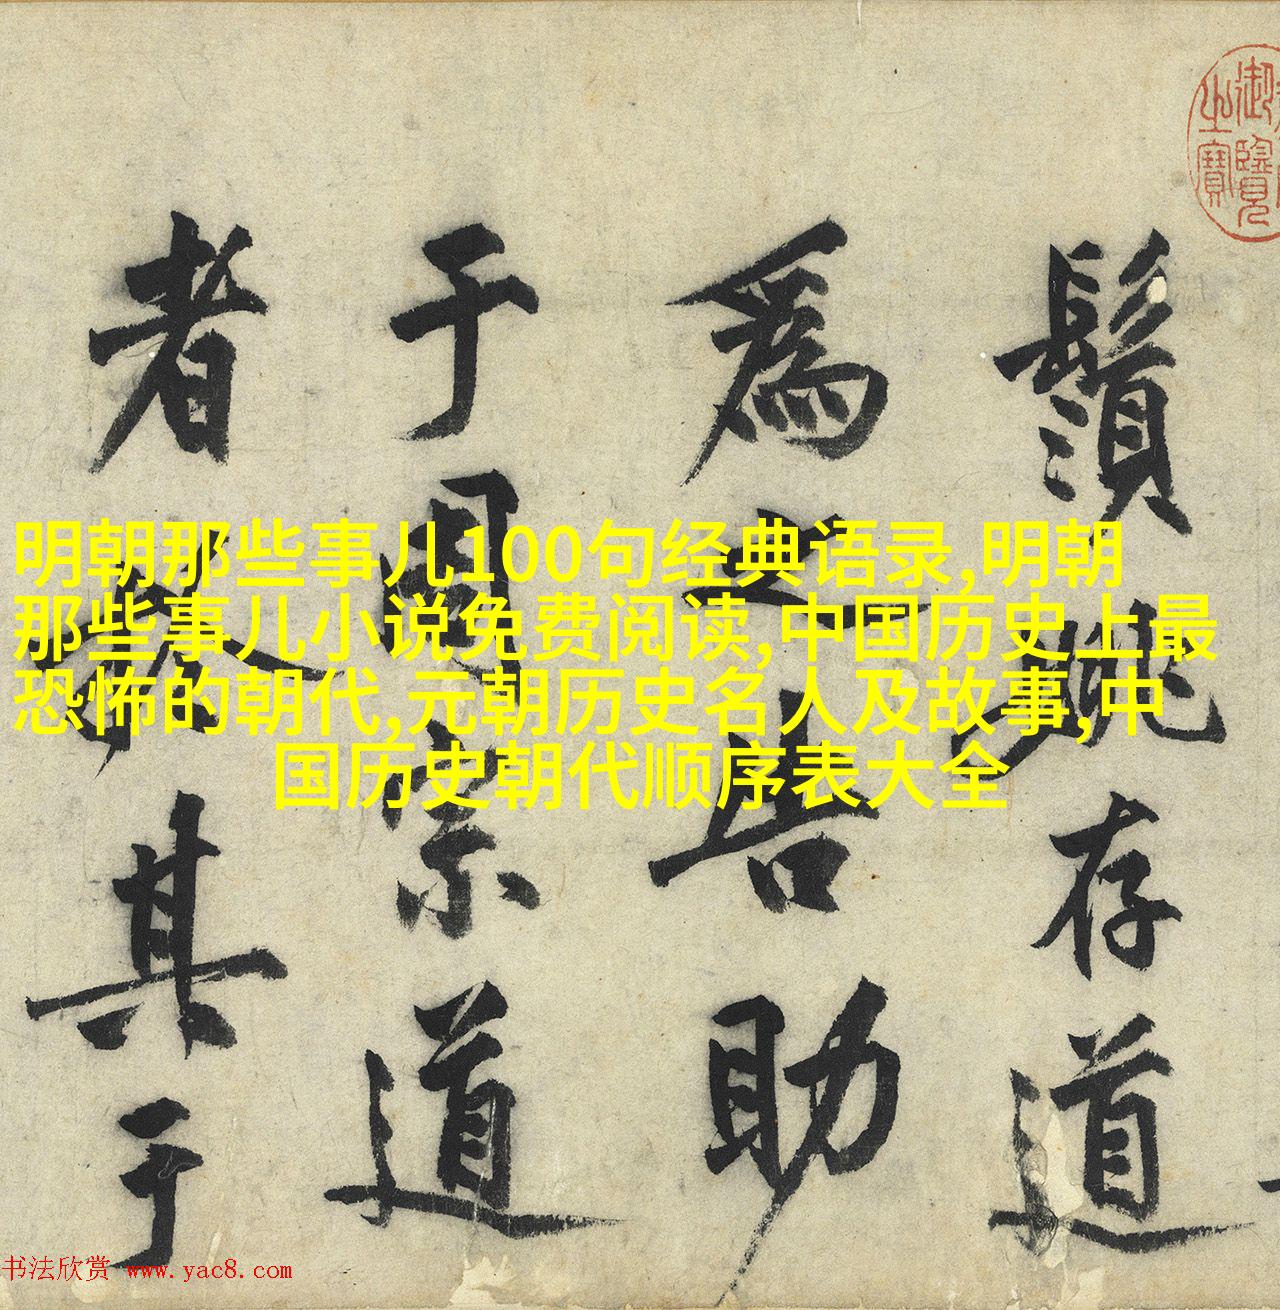 御覽
之寶
鬚姚存道
為之告助
于周宗道
者於其于
明朝那些事儿100句经典语录,明朝
那些事儿小说免费阅读,中国历史上最
恐怖的朝代,元朝历史名人及故事,中
国历史朝代顺序表大全
书法欣赏 www.yac8.com